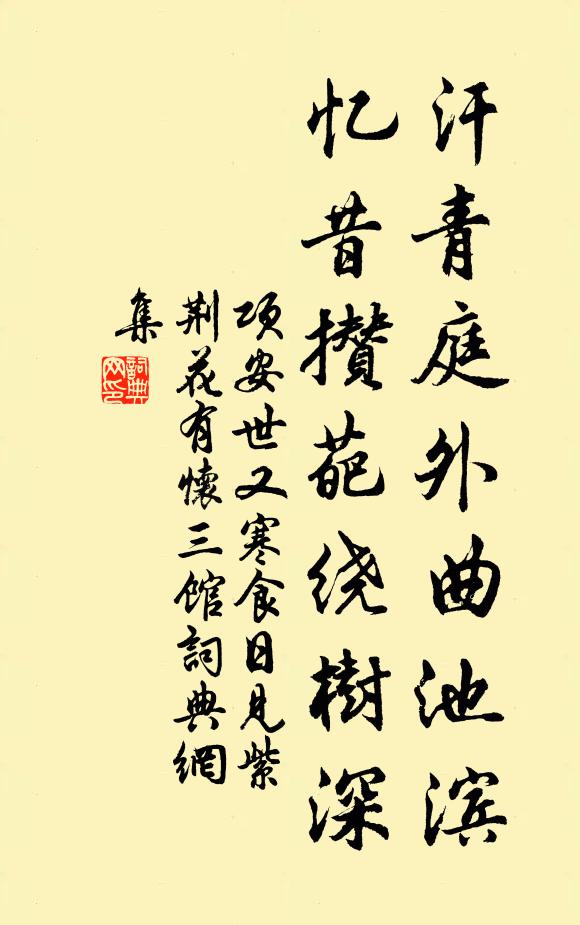 汗青庭外曲池滨
忆昔攒葩绕樹深
项安世又寒食日见紫
荆花有懷三馆詞典網
集
詞典網印